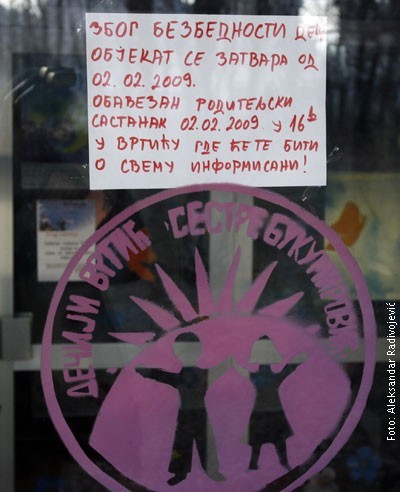 ЗБОГ БЕЗБЕДНОСТИ ДЕЦЕ
ОБЈЕКАТ СЕ ЗАТВАРА ОД
02.02.2009.
ОБАВЕЗАН РОДИТЕЉСКИ
САСТАНАК 02.02.2009 У 16h
У ВРТИЋУ ГДЕ ЋЕТЕ БИТИ
О СВЕМУ ИНФОРМИСАНИ!
ДЕЧИЈИ ВРТИЋ СЕСТРЕ БУКУМИРОВИЋ
Foto: Aleksandar Radivojević